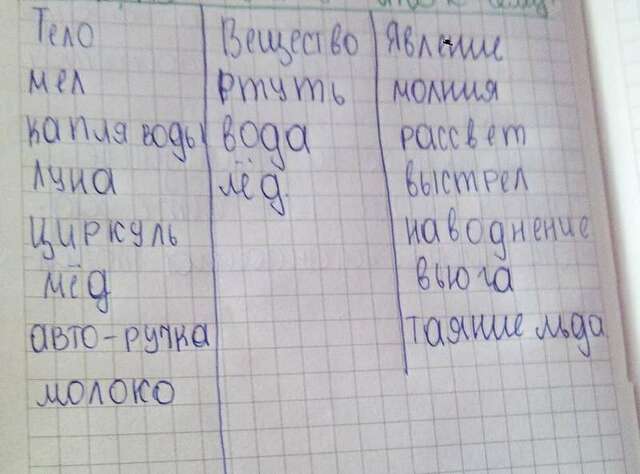 Тело Вещество Явление
мел ртуть молния
капля воды вода рассвет
луна лёд. выстрел
циркуль наводнение
мёд вьюга
авто-ручка таяние льда
молоко